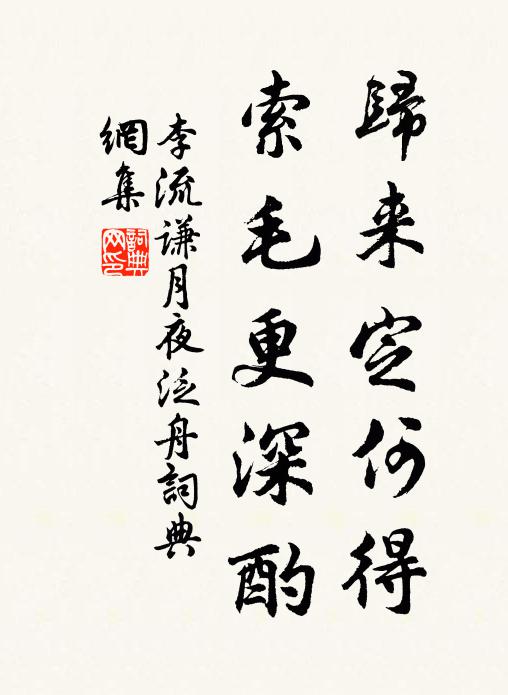 歸来定何得
索毛更深酌
李流谦月夜泛舟詞典
網集
詞典
网印